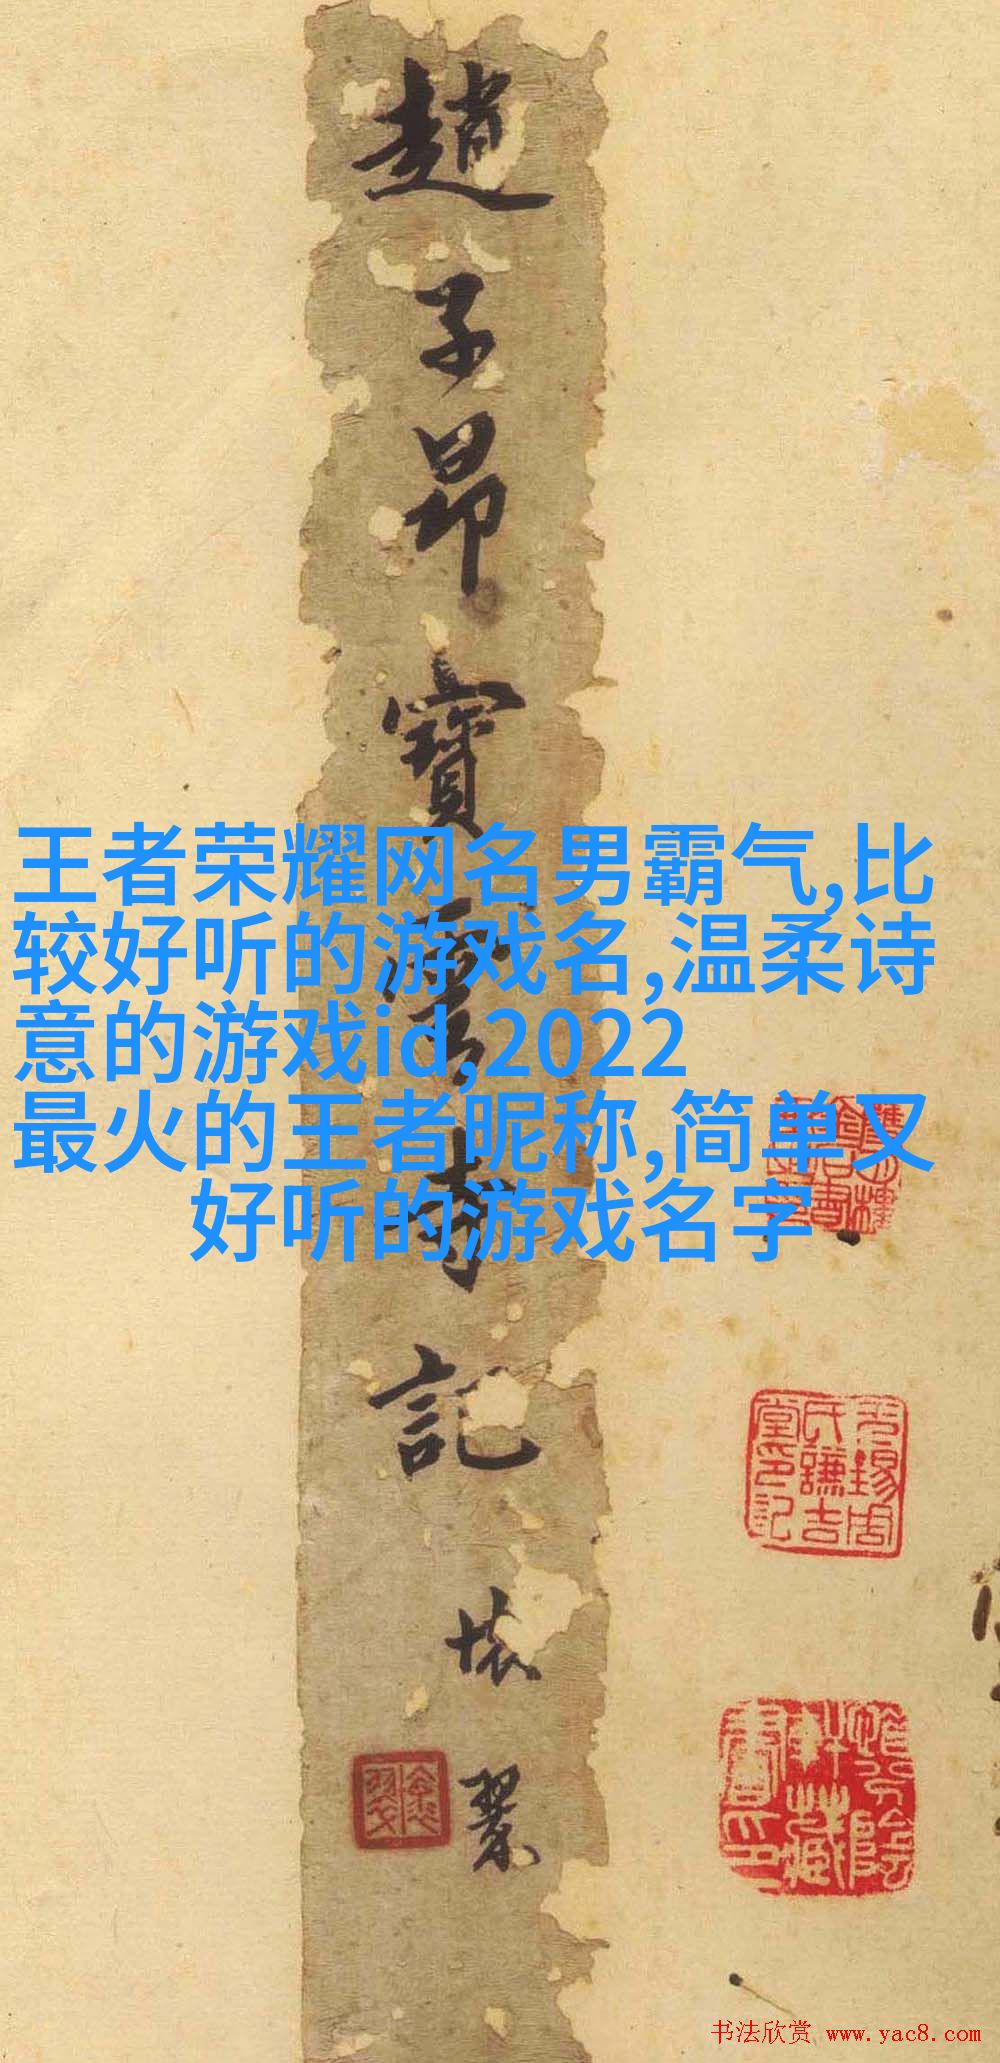 趙子昂寶雲寺記
懐
王者荣耀网名男霸气,比
较好听的游戏名,温柔诗
意的游戏id,2022
最火的王者昵称,简单又
好听的游戏名字
氏謙吉
堂印記
軒藏
書印
书法欣赏 www.yac8.com